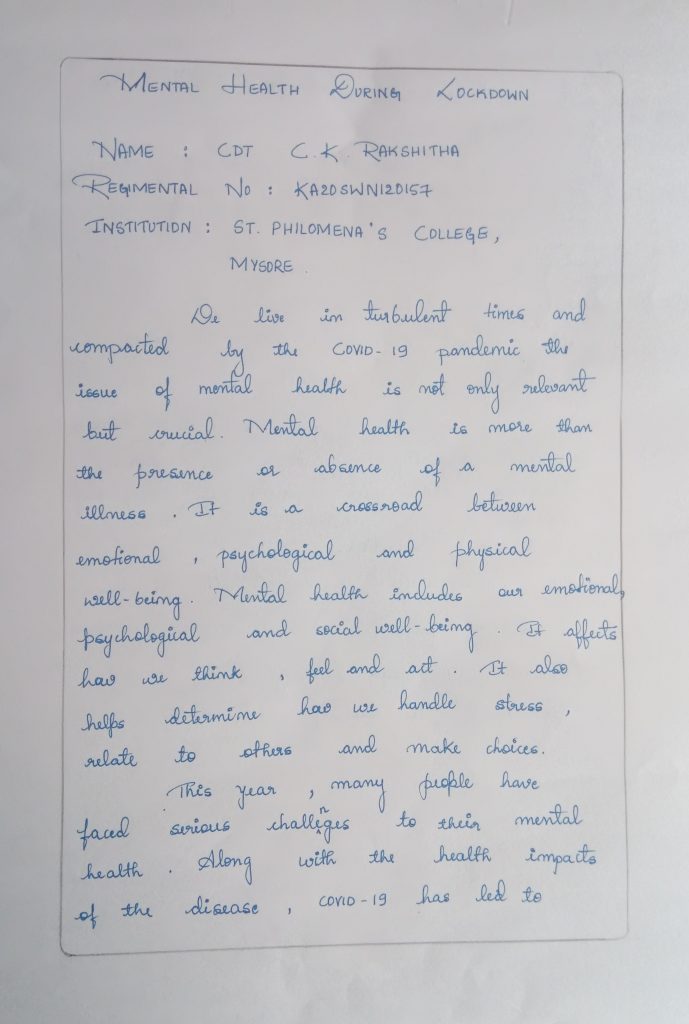 MENTAL HEALTH DURING LOCKDOWN
NAME : CDT C. K. RAKSHITHA
REGIMENTAL NO : KA20SWN120157
INSTITUTION : ST. PHILOMENA'S COLLEGE,
MYSORE .
We live in turbulent times and
compacted by the COVID-19 pandemic the
issue of mental health is not only relevant
but crucial. Mental health is more than
the presence or absence of a mental
illness . It is a crossroad between
emotional , psychological and physical
well-being. Mental health includes our emotional,
psychological and social well-being . It affects
how we think , feel and act . It also
helps determine how we handle stress ,
relate to others and make choices.
This year , many people have
faced serious challenges to their mental
health . Along with the health impacts
of the disease , COVID-19 has led to